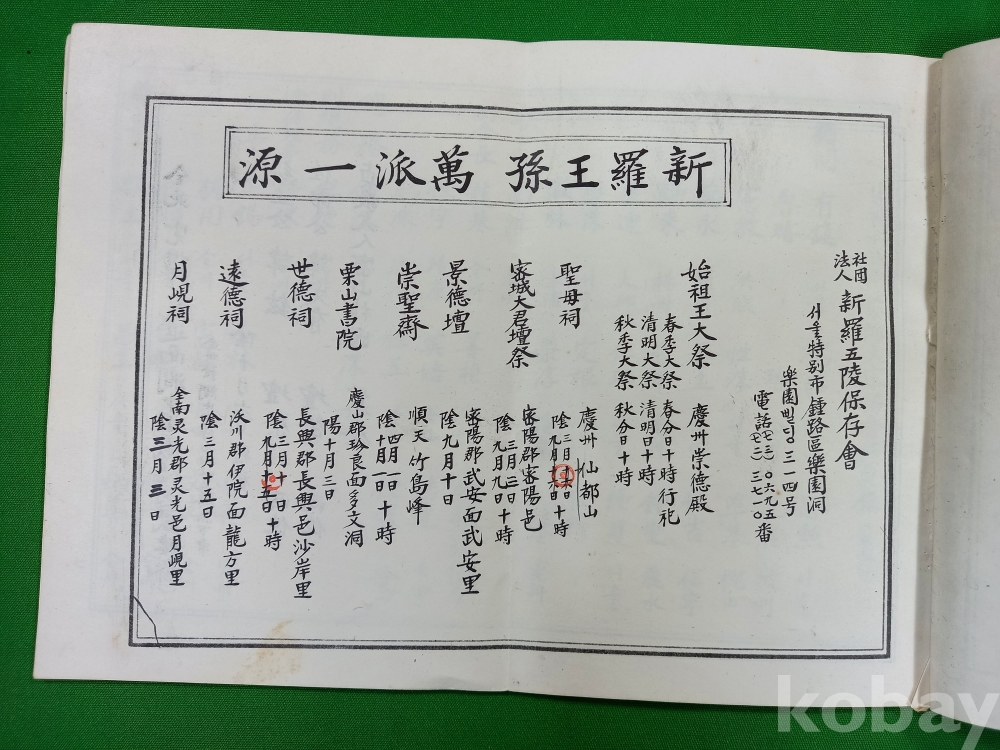 新羅王孫 萬派一源
社團法人 新羅五陵保存會
서울特别市鍾路區樂園洞
樂園빌딩 三一四号
電話
番
始祖王大祭 慶州崇德殿
春季大祭 春分日十時行祀
清明大祭 清明日十時
秋季大祭 秋分日十時
聖母祠 慶州 仙都山
十時
密城大君壇祭 密陽郡密陽邑
陰 三月三日 九月九日 十時
景德壇 密陽郡武安面武安里
陰九月十日
崇聖齋 順天 竹島峰
陰 四月一日 十月一日 十時
栗山書院 慶山郡珍良面多文洞
陽十月三日
世德祠 長興郡長興邑沙岸里
十時
遠德祠 沃川郡伊院面龍方里
陰三月十五日
月峴祠 全南灵光郡灵光邑月峴里
陰三月三日
kobay